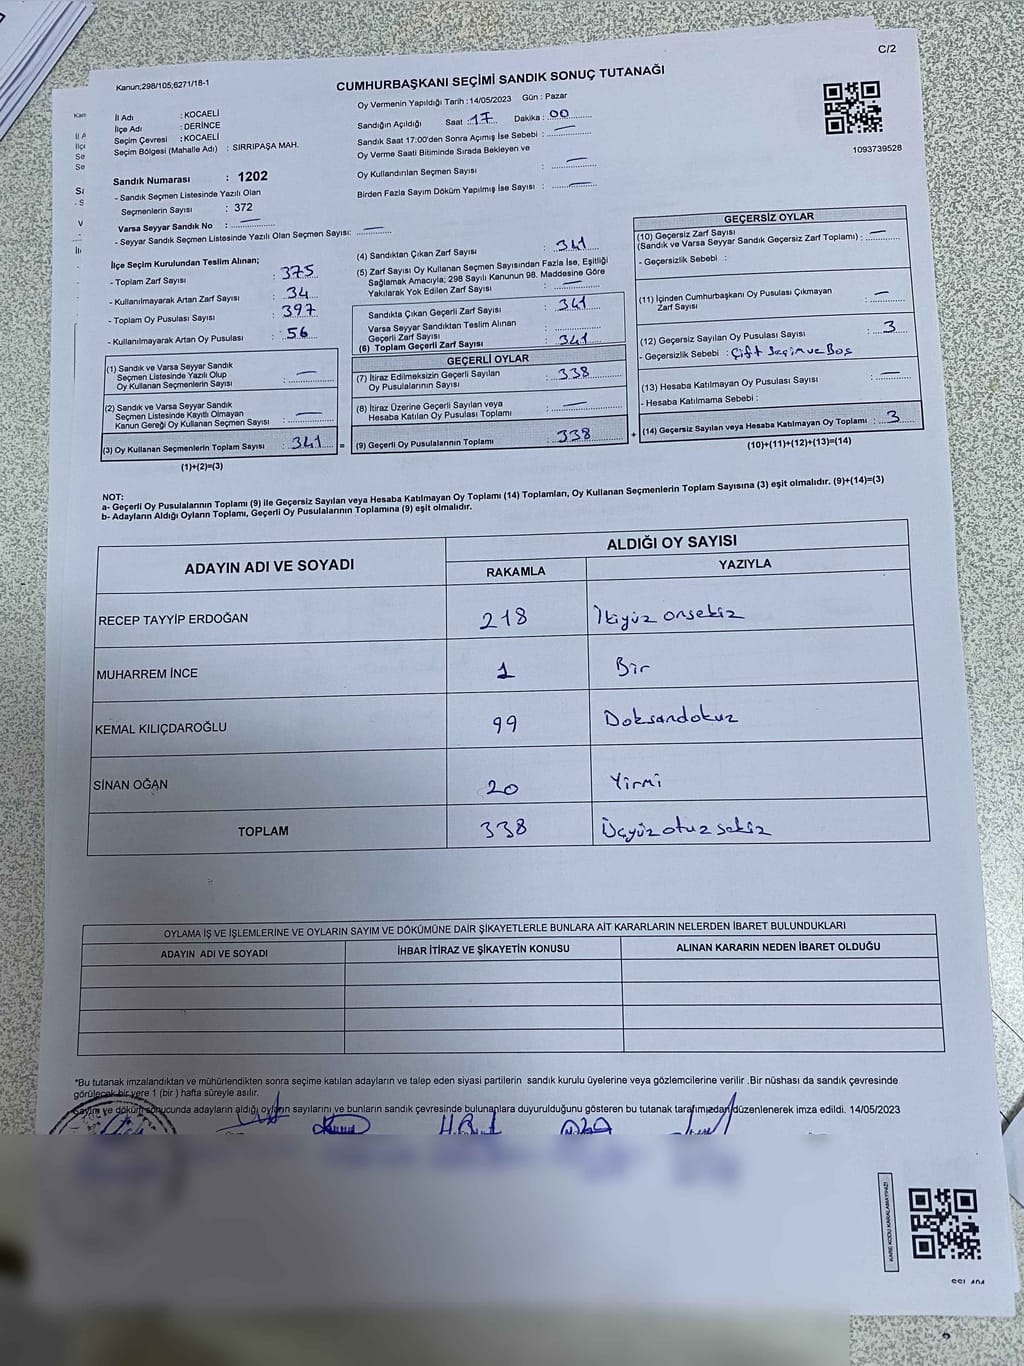 C/2
Kanun;298/105;6271/18-1
CUMHURBAŞKANI SEÇİMİ SANDIK SONUÇ TUTANAĞI
Oy Vermenin Yapıldığı Tarih :14/05/2023 Gün : Pazar
İl Adı : KOCAELİ
İlçe Adı : DERİNCE
Seçim Çevresi : KOCAELİ
Seçim Bölgesi (Mahalle Adı) : SIRRIPAŞA MAH.
Sandığın Açıldığı Saat : 17 Dakika : 00
Sandık Saat 17:00'den Sonra Açımış İse Sebebi : —
Oy Verme Saati Bitiminde Sırada Bekleyen ve
Oy Kullandırılan Seçmen Sayısı : —
Birden Fazla Sayım Döküm Yapılmış İse Sayısı : —
1093739528
Sandık Numarası : 1202
- Sandık Seçmen Listesinde Yazılı Olan
Seçmenlerin Sayısı : 372
Varsa Seyyar Sandık No : —
- Seyyar Sandık Seçmen Listesinde Yazılı Olan Seçmen Sayısı: —
İlçe Seçim Kurulundan Teslim Alınan;
- Toplam Zarf Sayısı : 375
- Kullanılmayarak Artan Zarf Sayısı : 34
- Toplam Oy Pusulası Sayısı : 397
- Kullanılmayarak Artan Oy Pusulası : 56
(1) Sandık ve Varsa Seyyar Sandık
Seçmen Listesinde Yazılı Olup
Oy Kullanan Seçmenlerin Sayısı : —
(2) Sandık ve Varsa Seyyar Sandık
Seçmen Listesinde Kayıtlı Olmayan
Kanun Gereği Oy Kullanan Seçmen Sayısı : —
(3) Oy Kullanan Seçmenlerin Toplam Sayısı : 341 =
(1)+(2)=(3)
(4) Sandıktan Çıkan Zarf Sayısı : 341
(5) Zarf Sayısı Oy Kullanan Seçmen Sayısından Fazla İse, Eşitliği
Sağlamak Amacıyla; 298 Sayılı Kanunun 98. Maddesine Göre
Yakılarak Yok Edilen Zarf Sayısı : —
Sandıkta Çıkan Geçerli Zarf Sayısı : 341
Varsa Seyyar Sandıktan Teslim Alınan
Geçerli Zarf Sayısı :
(6) Toplam Geçerli Zarf Sayısı : 341
GEÇERLİ OYLAR
(7) İtiraz Edilmeksizin Geçerli Sayılan
Oy Pusulalarının Sayısı : 338
(8) İtiraz Üzerine Geçerli Sayılan veya
Hesaba Katılan Oy Pusulası Toplamı : —
(9) Geçerli Oy Pusulalarının Toplamı : 338 +
GEÇERSİZ OYLAR
(10) Geçersiz Zarf Sayısı
(Sandık ve Varsa Seyyar Sandık Geçersiz Zarf Toplamı) : —
- Geçersizlik Sebebi :
(11) İçinden Cumhurbaşkanı Oy Pusulası Çıkmayan
Zarf Sayısı : —
(12) Geçersiz Sayılan Oy Pusulası Sayısı : 3
- Geçersizlik Sebebi : Çift Seçim ve Boş
(13) Hesaba Katılmayan Oy Pusulası Sayısı : —
- Hesaba Katılmama Sebebi :
(14) Geçersiz Sayılan veya Hesaba Katılmayan Oy Toplamı : 3
(10)+(11)+(12)+(13)=(14)
NOT:
a- Geçerli Oy Pusulalarının Toplamı (9) ile Geçersiz Sayılan veya Hesaba Katılmayan Oy Toplamı (14) Toplamları, Oy Kullanan Seçmenlerin Toplam Sayısına (3) eşit olmalıdır. (9)+(14)=(3)
b- Adayların Aldığı Oyların Toplamı, Geçerli Oy Pusulalarının Toplamına (9) eşit olmalıdır.
ADAYIN ADI VE SOYADI
ALDIĞI OY SAYISI
RAKAMLA YAZIYLA
RECEP TAYYİP ERDOĞAN 218 İkiyüz onsekiz
MUHARREM İNCE 1 Bir
KEMAL KILIÇDAROĞLU 99 Doksandokuz
SİNAN OĞAN 20 Yirmi
TOPLAM 338 Üçyüz otuz sekiz
OYLAMA İŞ VE İŞLEMLERİNE VE OYLARIN SAYIM VE DÖKÜMÜNE DAİR ŞİKAYETLERLE BUNLARA AİT KARARLARIN NELERDEN İBARET BULUNDUKLARI
ADAYIN ADI VE SOYADI İHBAR İTİRAZ VE ŞİKAYETİN KONUSU ALINAN KARARIN NEDEN İBARET OLDUĞU
*Bu tutanak imzalandıktan ve mühürlendikten sonra seçime katılan adayların ve talep eden siyasi partilerin sandık kurulu üyelerine veya gözlemcilerine verilir .Bir nüshası da sandık çevresinde
görülecek bir yere 1 (bir ) hafta süreyle asılır.
Sayım ve döküm sonucunda adayların aldığı oyların sayılarını ve bunların sandık çevresinde bulunanlara duyurulduğunu gösteren bu tutanak tarafımızdan düzenlenerek imza edildi. 14/05/2023
KARE KODU KARALAMAYINIZ!